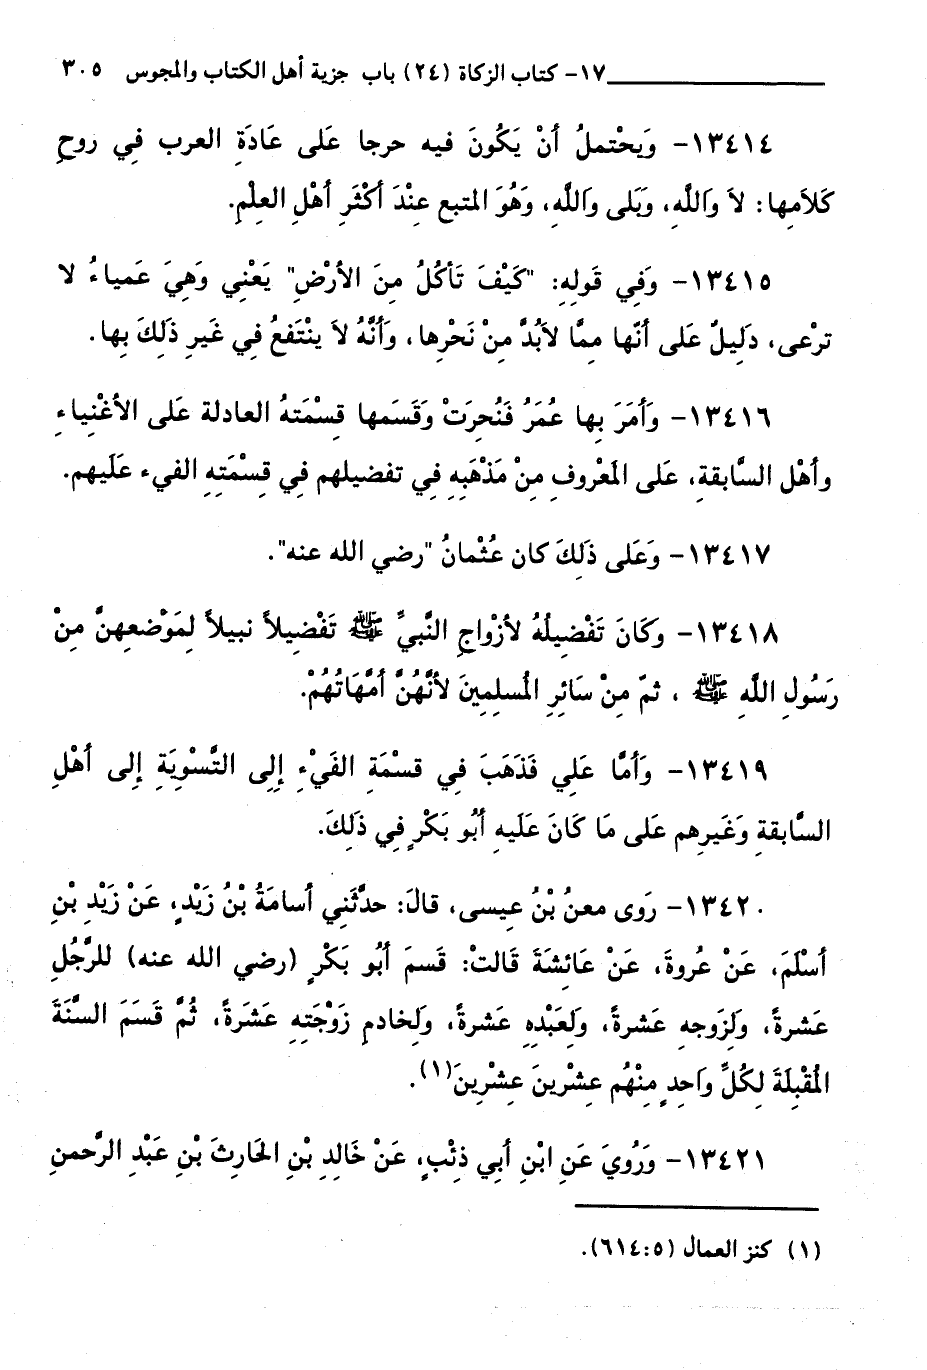 ١٧- كتاب الزكاة (٢٤) باب جزية أهل الكتاب والمجوس ٣٠٥
١٣٤١٤- وَيَحْتملُ أَنْ يَكُونَ فيه حرجا عَلى عَادَةِ العرب فِي روحِ
كَلاَمِها: لاَ وَاللَّهِ، وَبَلى واَللَّهِ، وَهُوَ المتبع عِنْدَ أكْثَرِ أهْلِ العِلْمِ.
١٣٤١٥- وَفي قَولِهِ: "كَيْفَ تَأكُلُ مِنَ الأرْضِ" يَعْنِي وَهِيَ عَمياءُ لا
ترْعى، دَلِيلٌ عَلى أنّها مِمَّا لاَبُدَّ مِنْ نَحْرِها، وَأنَّهُ لاَ ينْتَفعُ فِي غَيرِ ذَلِكَ بِها.
١٣٤١٦- وَأمَرَ بِها عُمَرُ فَنُحِرَتْ وَقَسَمها قِسْمَتهُ العادلة عَلَى الأغْنِياءِ
وأهْل السَّابقةِ، عَلى المَعْروفِ مِنْ مَذْهَبِهِ فِي تفضيلهم فِي قِسْمَتِهِ الفيء عَلَيهم.
١٣٤١٧- وَعَلى ذَلِكَ كان عُثْمانُ "رضي الله عنه".
١٣٤١٨- وكَانَ تَفْضِيلُهُ لأزْواجِ النَّبيِّ ﷺ تَفْضِيلاً نبيلاً لِمَوْضعِهنَّ مِنْ
رَسُولِ اللَّهِ ﷺ ، ثمّ مِنْ سَائِرِ المُسلِمِينَ لأنَّهُنَّ أمَّهَاتُهُمْ.
١٣٤١٩- وَأمَّا عَلِي فَذَهَبَ فِي قسْمَةِ الفَيْءِ إِلِى التَّسْوِيَةِ إِلى أهْلِ
السَّابقةِ وَغَيرِهم عَلى مَا كَانَ عَلَيهِ أبُو بَكْرٍ فِي ذَلِكَ.
١٣٤٢٠- رَوى معنُ بْنُ عِيسى، قالَ: حدَّثَنِي أسامَةُ بْنُ زَيْدٍ، عَنْ زَيْدِ بْنِ
أسْلَمَ، عَنْ عُروةَ، عَنْ عَائِشَةَ قَالتْ: قَسمَ أبُو بَكْرٍ (رضي الله عنه) للرَّجُلِ
عَشرةً، ولِزَوجِهِ عَشرةً، ولِعَبْدِهِ عَشرةً، ولِخادمِ زَوْجَتِهِ عَشَرَةً، ثُمَّ قَسَمَ السَّنَةَ
المُقْبِلَةَ لِكُلِّ وَاحِدٍ مِنْهُم عِشْرِينَ عِشْرِينَ(١).
١٣٤٢١- وَرُوِيَ عَنِ ابْنِ أبِي ذئْبٍ، عَنْ خَالِدِ بْنِ الحَارِثَ بْنِ عَبْدِ الرَّحمنِ
(١) كنز العمال (٦١٤:٥).